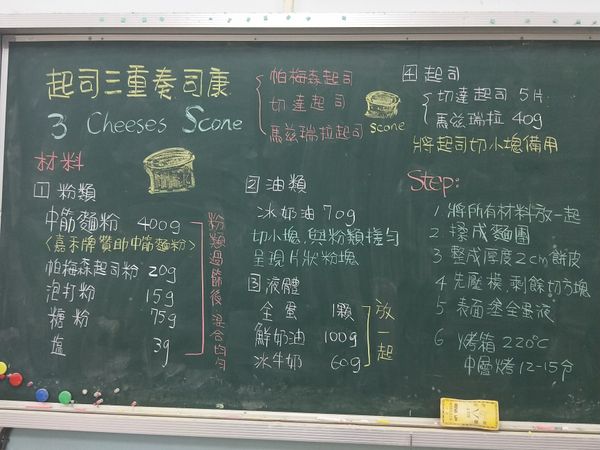 起司三重奏司康
3 Cheeses Scone
帕梅森起司
切達起司
馬茲瑞拉起司
scone
材料
1 粉類
中筋麵粉 400g
<嘉禾牌贊助中筋麵粉>
帕梅森起司粉 20g
泡打粉 15g
糖粉 75g
鹽 3g
粉類過篩後 混合均勻
2 油類
冰奶油 70g
切小塊,與粉類搓勻
呈現片狀粉塊
3 液體
全蛋 1顆
鮮奶油 100g
冰牛奶 60g
放一起
4 起司
切達起司 5片
馬茲瑞拉 40g
將起司切小塊備用
Step:
1 將所有材料放一起
2 揉成麵團
3 整成厚度2cm餅皮
4 先壓模,剩餘切方塊
5 表面塗全蛋液
6 烤箱 220℃
中層烤12-15分